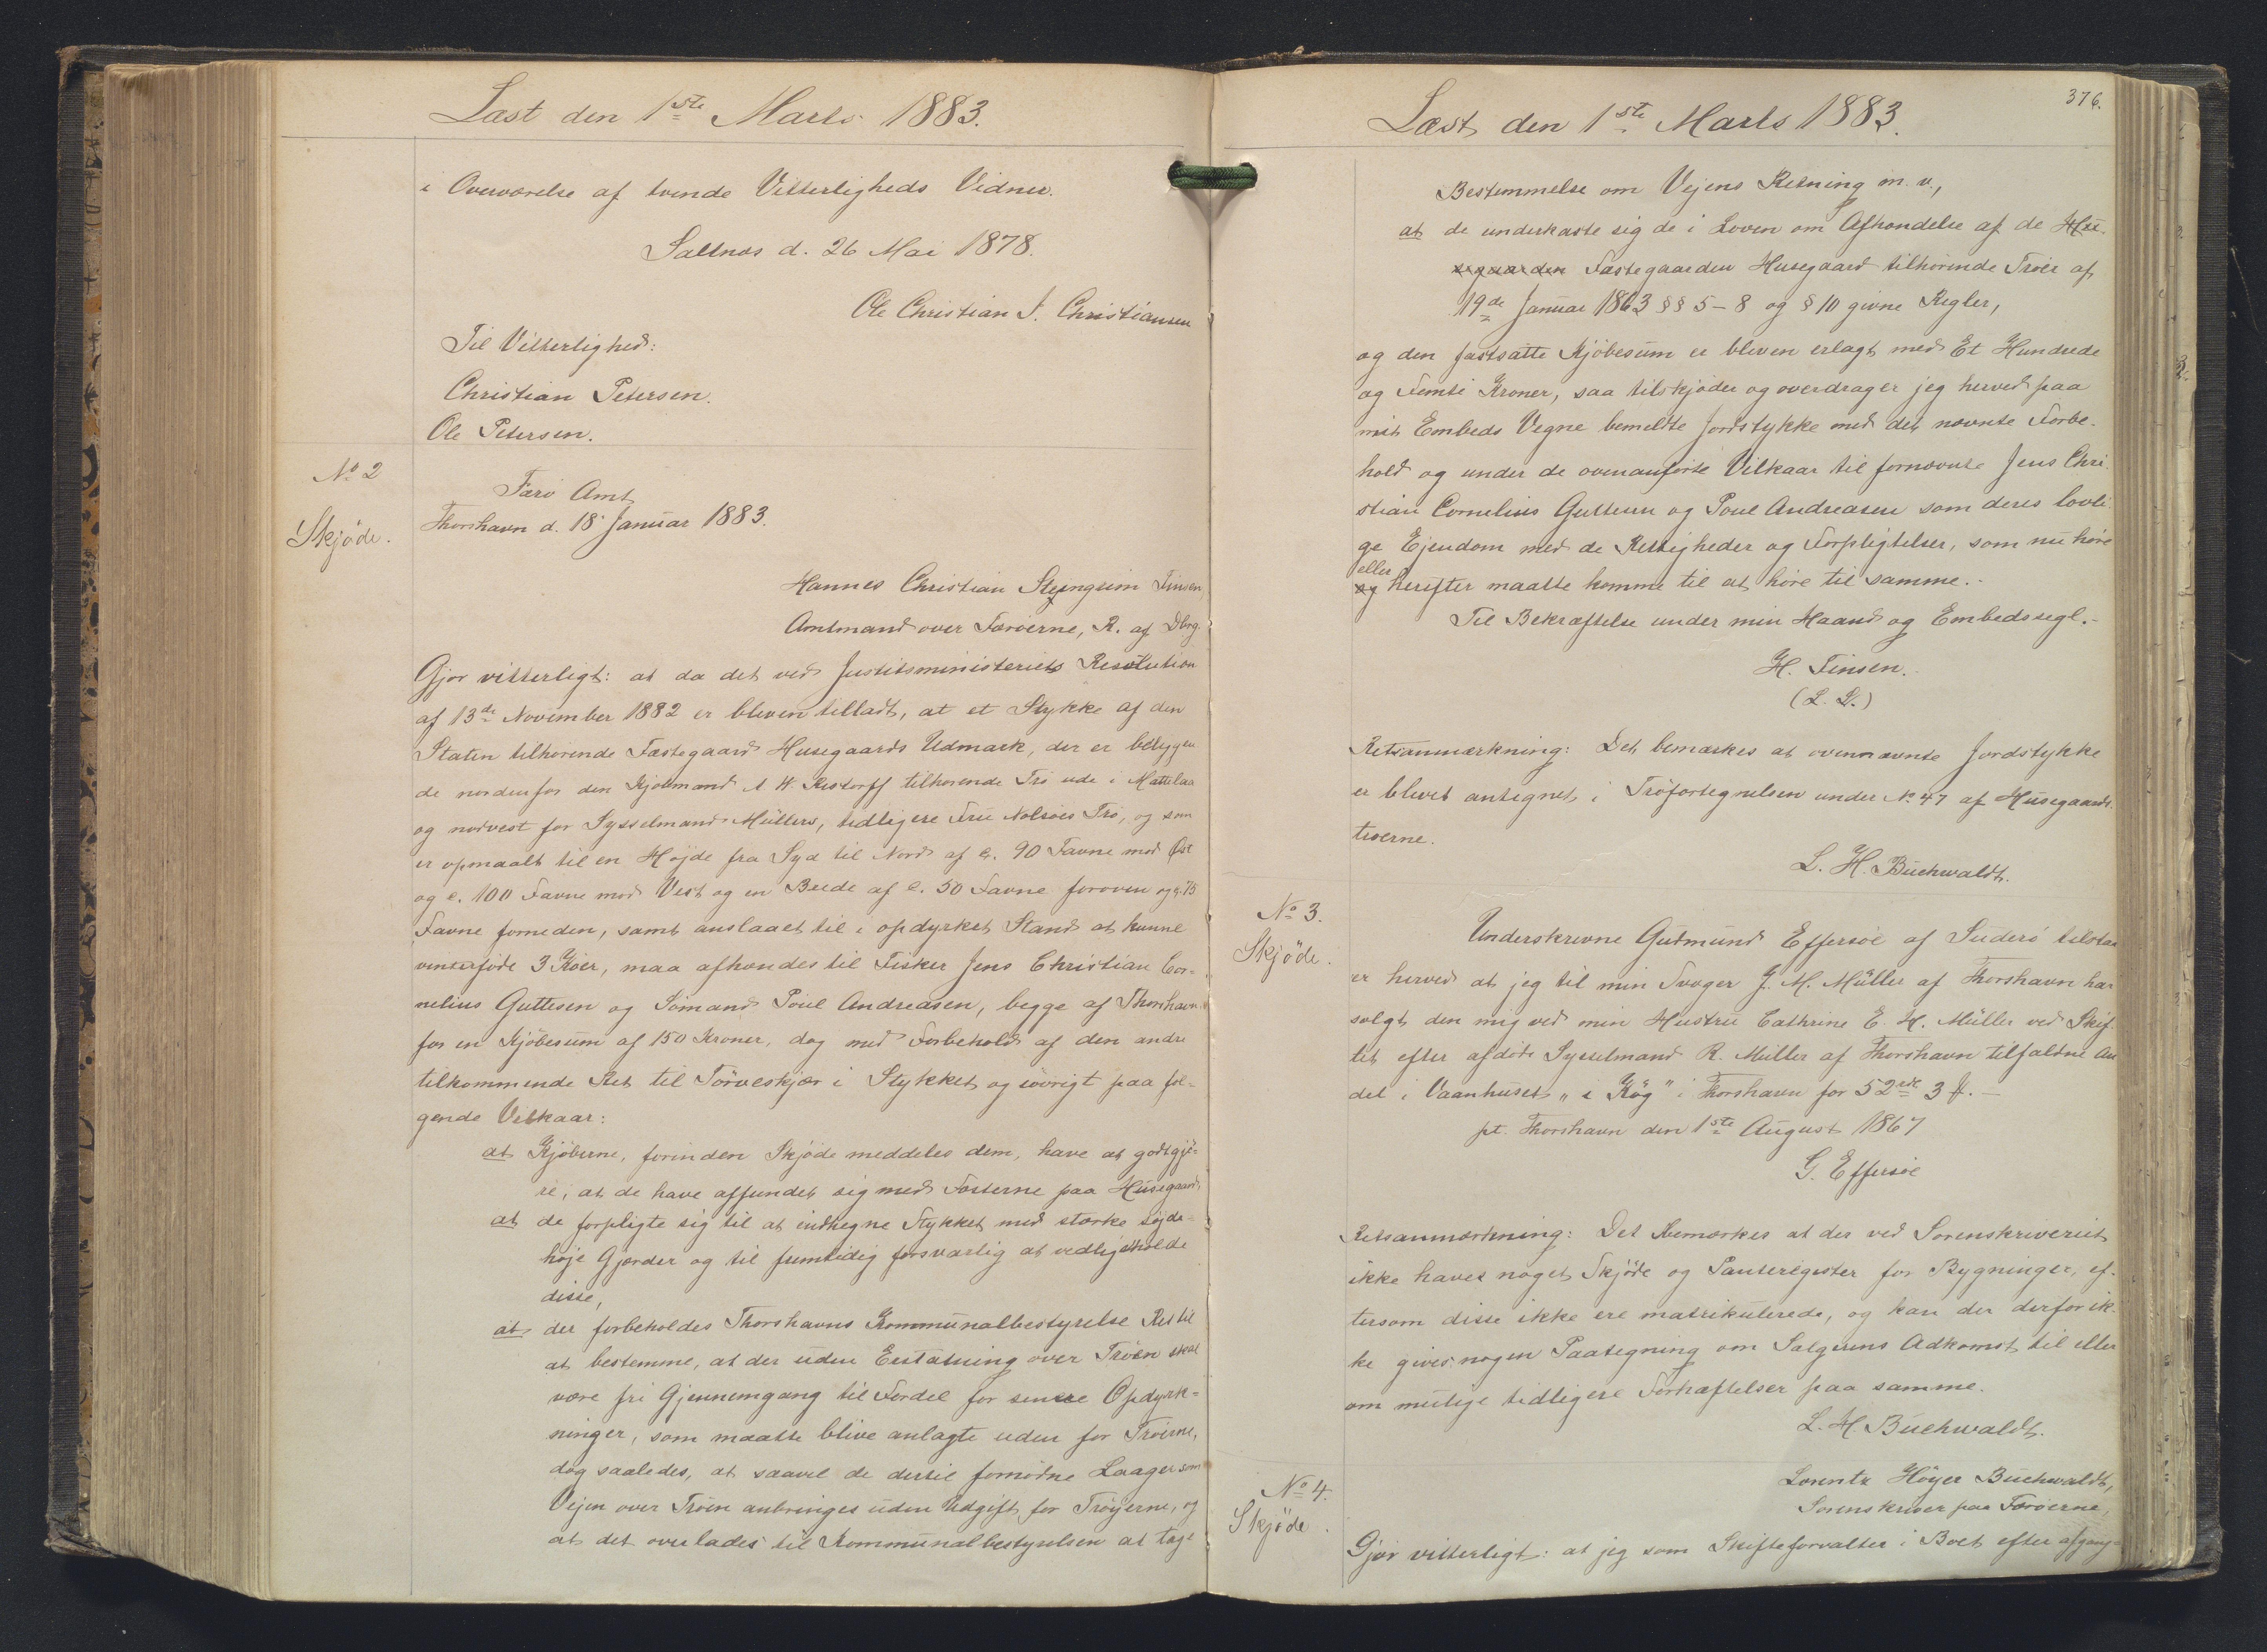 Læst den 1ste Marts 1883.
i Overværelse af tvende Vitterligheds Vidner.
Saltnæs d. 26 Mai 1878.
Ole Christian J. Christiansen
Til Vitterlighed:
Christian Petersen.
Ole Petersen.
No 2
Skjöde.
Færö Amt
Thorshavn d. 18 Januar 1883.
Hannes Christian Steingrim Finsen,
Amtmand over Færöerne, R. af Dbrg.
Gjör vitterligt: at da det ved Justitsministeriets Resolution
af 13de November 1882 er bleven tilladt, at et Stykke af den
Staten tilhörende Fæstegaard Husegaards Udmark, der er beliggen
de nordenfor den Kjöbmand M. W. Restorff tilhörende Trö ude i Mattelaa
og nordvest for Sysselmand Müllers, tidligere Fru Nolsöes Trö, og som
er opmaalt til en Höjde fra Syd til Nord af c. 90 Favne mod Öst
og c. 100 Favne mod Vest og en Brede af c. 50 Favne foroven og c. 75
Favne forneden, samt anslaaet til i opdyrket Stand at kunne
vinterföde 3 Köer, maa afhændes til Fisker Jens Christian Cor-
nelius Guttesen og Sömand Poul Andreasen, begge af Thorshavn
for en Kjöbesum af 150 Kroner, dog med Forbehold af den andre
tilkommende Ret til Törveskjær i Stykket og iövrigt paa föl-
gende Vilkaar:
at Kjöberne, forinden Skjöde meddeles dem, have at godtgjö-
re, at de have affundet sig med Fæsterne paa Husegaard,
at de forpligte sig til at indhegne Stykket med stærke söjde-
höje Gjærder og til fremtidig forsvarlig at vedligeholde
disse,
at der forbeholdes Thorshavns Kommunalbestyrelse Ret til
at bestemme, at der uden Erstatning over Tröen skal
være fri Gjennemgang til Fordel for senere Opdyrk-
ninger, som maatte blive anlagte uden for Tröerne,
dog saaledes, at saavel de dertil fornödne Laager som
Vejen over Tröen anbringes uden Udgift for Tröejerne, og
at det overlades til Kommunalbestyrelsen at tage
376.
Læst den 1ste Marts 1883.
Bestemmelse om Vejens Retning m. v.,
at de underkaste sig de i Loven om Afhændelse af de Hu-
segaarden Fæstegaarden Husegaard tilhörende Tröer af
19de Januar 1863 §§ 5-8 og § 10 givne Regler,
og den fastsatte Kjöbesum er bleven erlagt med Et Hundrede
og Femti Kroner, saa tilskjöder og overdrager jeg herved paa
mit Embeds Vegne bemeldte Jordstykke med det nævnte Forbe-
hold og under de ovenanförte Vilkaar til fornævnte Jens Chri-
stian Cornelius Guttesen og Poul Andreasen som deres lovli-
ge Ejendom med de Rettigheder og Forpligtelser, som nu höre
eller
og herefter maatte komme til at höre til samme.
Til Bekræftelse under min Haand og Embedssegl.
H. Finsen.
(L. S.)
Retsanmærkning: Det bemærkes at ovennævnte Jordstykke
er blevet antegnet i Tröfortegnelsen under No 47 af Husegaards
tröerne.
L. H. Buchwaldt.
No 3.
Skjöde.
Underskrevne Gudmund Effersöe af Suderö tilstaa
er herved at jeg til min Svoger J. M. Müller af Thorshavn har
solgt den mig ved min Hustru Cathrine E. H. Müller ved Skif-
tet efter afdöde Sysselmand R. Müller af Thorshavn tilfaldne An
del i Vaanhuset "i Kög" i Thorshavn for 52 rd 3 ß.
pt. Thorshavn den 1ste August 1867
G. Effersöe
Retsanmærkning: Det bemærkes at der ved Sorenskriveriet
ikke haves noget Skjöde og Panteregister for Bygninger, ef-
tersom disse ikke ere matrikulerede, og kan der derfor ik-
ke gives nogen Paategning om Sælgerens Adkomst til eller
om mulige tidligere Forhæftelser paa samme.
L. H. Buchwaldt.
No 4.
Skjöde.
Lorentz Höyer Buchwaldt,
Sorenskriver paa Færöerne,
Gjör vitterligt: at jeg som Skifteforvalter i Boet efter afgang-